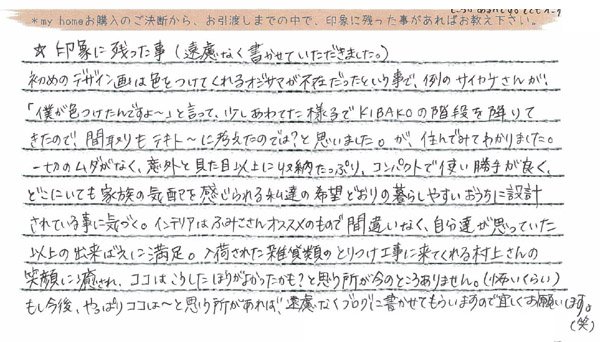 *my homeお購入のご決断から、お引渡しまでの中で、印象に残った事があればお教え下さい。
☆印象に残った事(遠慮なく書かせていただきました。)
初めのデザイン画は色をつけてくれるオジサマが不在だったという事で、例のサイカケさんが、
「僕が色つけたんですよ〜」と言って、少しあわてた様子でKIBAKOの階段を降りて
きたので、間取りもテキト〜に考えたのでは?と思いました。が、住んでみてわかりました。
一切のムダがなく、意外と見た目以上に収納たっぷり、コンパクトで使い勝手が良く、
どこにいても家族の気配を感じられる私達の希望どおりの暮らしやすいおうちに設計
されている事に気づく。インテリアはふみこさんオススメのもので間違いなく、自分達が思っていた
以上の出来ばえに満足。入荷された雑貨類のとりつけ工事に来てくれる村上さんの
笑顔に癒され、ココはこうしたほうがよかったかも?と思う所が今のところありません。(怖いくらい)
もし今後、やっぱりココは〜と思う所があれば、遠慮なくブログに書かせてもらいますので宜しくお願いします。
(笑)